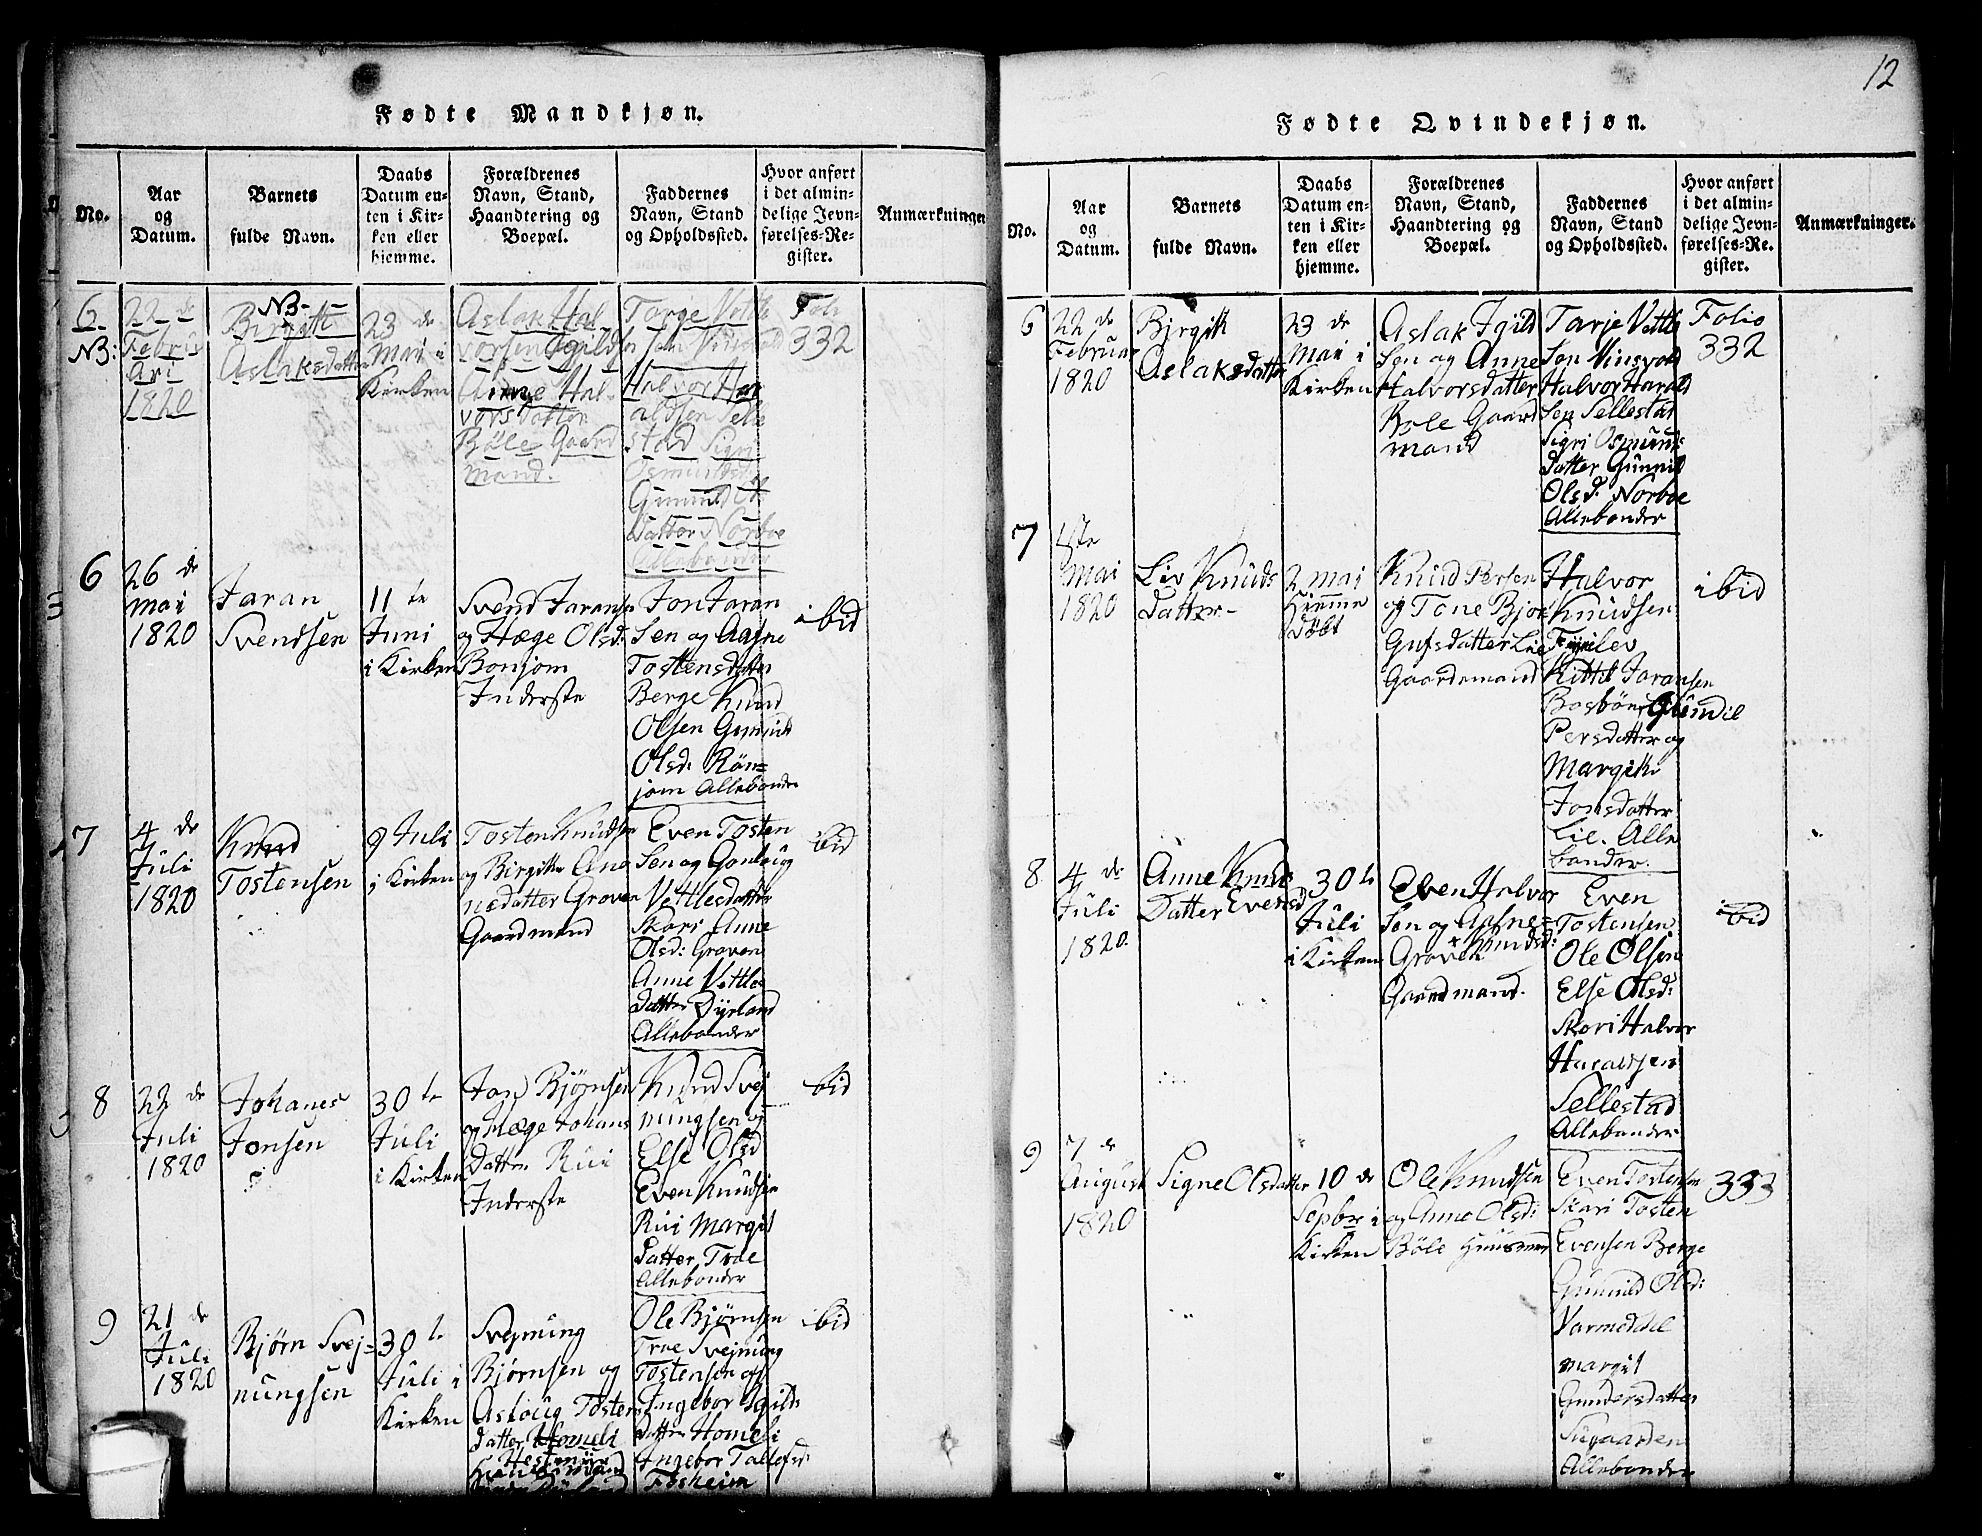 12
Fødte Mandkjøn.
No.
Aar
og
Datum.
Barnets
fulde Navn.
Daabs
Datum en-
ten i Kir-
ken eller
hjemme.
Forældrenes
Navn, Stand,
Haandtering og
Boepæl.
Faddernes
Navn, Stand
og Opholdssted.
Hvor anført
i det almin-
delige Jevn-
førelses-Re-
gister.
Anmærkninger
6
NB:
22 de
Febru
Ari
1820
NB-
Birgitte
Aslaksdatter
23 de
Mai i
Kirken
Aslak Hal
vorsen Igilds
Anne Hal-
vorsdatter
Böle Gaard
mand.
Targe Vettle
Sen Vinsvold
Halvor Har
aldsen Selle
stad Sigri
Osmundsd
Gunnild Ols
datter Norboe
Allebønder
Foli
332
6
26 de
Mai
1820
Jaran
Svendsen
11 te
Juni
i Kirken
Svend Jaransen
og Hæge Olsd:
Bonjom
Inderste
Jon Jaran
Sen og Aafne
Tostensdatter
Berge Knud
Olsen Gunnild
Olsd: Rön=
jom Allebønder
ibid
7
4 de
Juli
1820
Knud
Tostensen
9 Juli
i Kirken
Tosten Knudsen
og Birgitte Ano
nsdatter Groven
Gaardmand
Even Tosten
Sen og Gonloug
Vettlesdatter
Skori Anne
Olsd: Groven
Anne Vettles
datter Dyrland
Allebønder
ibid
8
22 de
Juli
1820
Johanes
Jonsen
30 te
Juli
i Kirken
Jon Bjørnsen
og Hæge Johans
Datter Rui
Inderste
Knud Svej
nungsen og
Else Olsd
Even Knudsen
Rui Margit
datter Troe
Allebønder
ibid
9
21 de
Juli
1820
Bjørn Svej=
nungsen
30 te
Juli i
Kirken
Svejnung
Bjørnsen og
Asloug Tostens
datter Homeli
Ole Bjørnsen
Troe Svejnung
Tostensen og
Ingebor Igilds
datter Homeli
Ingebor Tallefsd:
Fosheim
ibid
Fødte Qvindekjøn.
No.
Aar
og
Datum.
Barnets
fulde Navn.
Daabs
Datum en-
ten i Kir-
ken eller
hjemme.
Forældrenes
Navn, Stand,
Haandtering og
Boepæl.
Faddernes
Navn, Stand
og Opholdssted.
Hvor anført
i det almin-
delige Jevn-
førelses-Re-
gister.
Anmærkninger.
6
22 de
Februar
1820
Birgitt
Aslaksdatter
23 de
Mai i
Kirken
Aslak Igild
Sen og Anne
Halvorsdatter
Bole Gaard
mand
Tarje Vettle
Sen Vinsvold
Halvor Harald
Sen Sellestad
Sigri Osmunds
datter Gunnil
Olsd: Norboe
Allebønder
Folio
332
7
1ste
Mai
1820
Liv Knuds
datter-
2 Mai
Hjemme
Döbt
Knud Persen
og Tone Bjor
Gufsdatter Lie
Gaardemand
Halvor
Knudsen
Kittil Jaransen
Bosbön Gunnil
Persdatter og
Margitt
Jonsdatter
Lie. Alle
bønder.
ibid
8
4 de
Juli
1820.
Anne Knud
Datter Evensd
30 te
Juli
i Kirken
Even Halvor
Sen og Aafne
Knudsd:
Groven
Gaardmand.
Even
Tostensen
Ole Olsen
Else Olsd:
Skori Halvor
Haraldsen
Sellestad
Allebønder
ibid
9
7 de
August
1820
Signe Olsdatter
10 de
Sepbr i
Kirken
Ole Knudsen
og Anne Olsd:
Böle Huusmand
Even Tostensen
Skori Tosten
Evensen Berge
Gunnild Olsd:
Margit
Gundersdatter
Allebønder
333